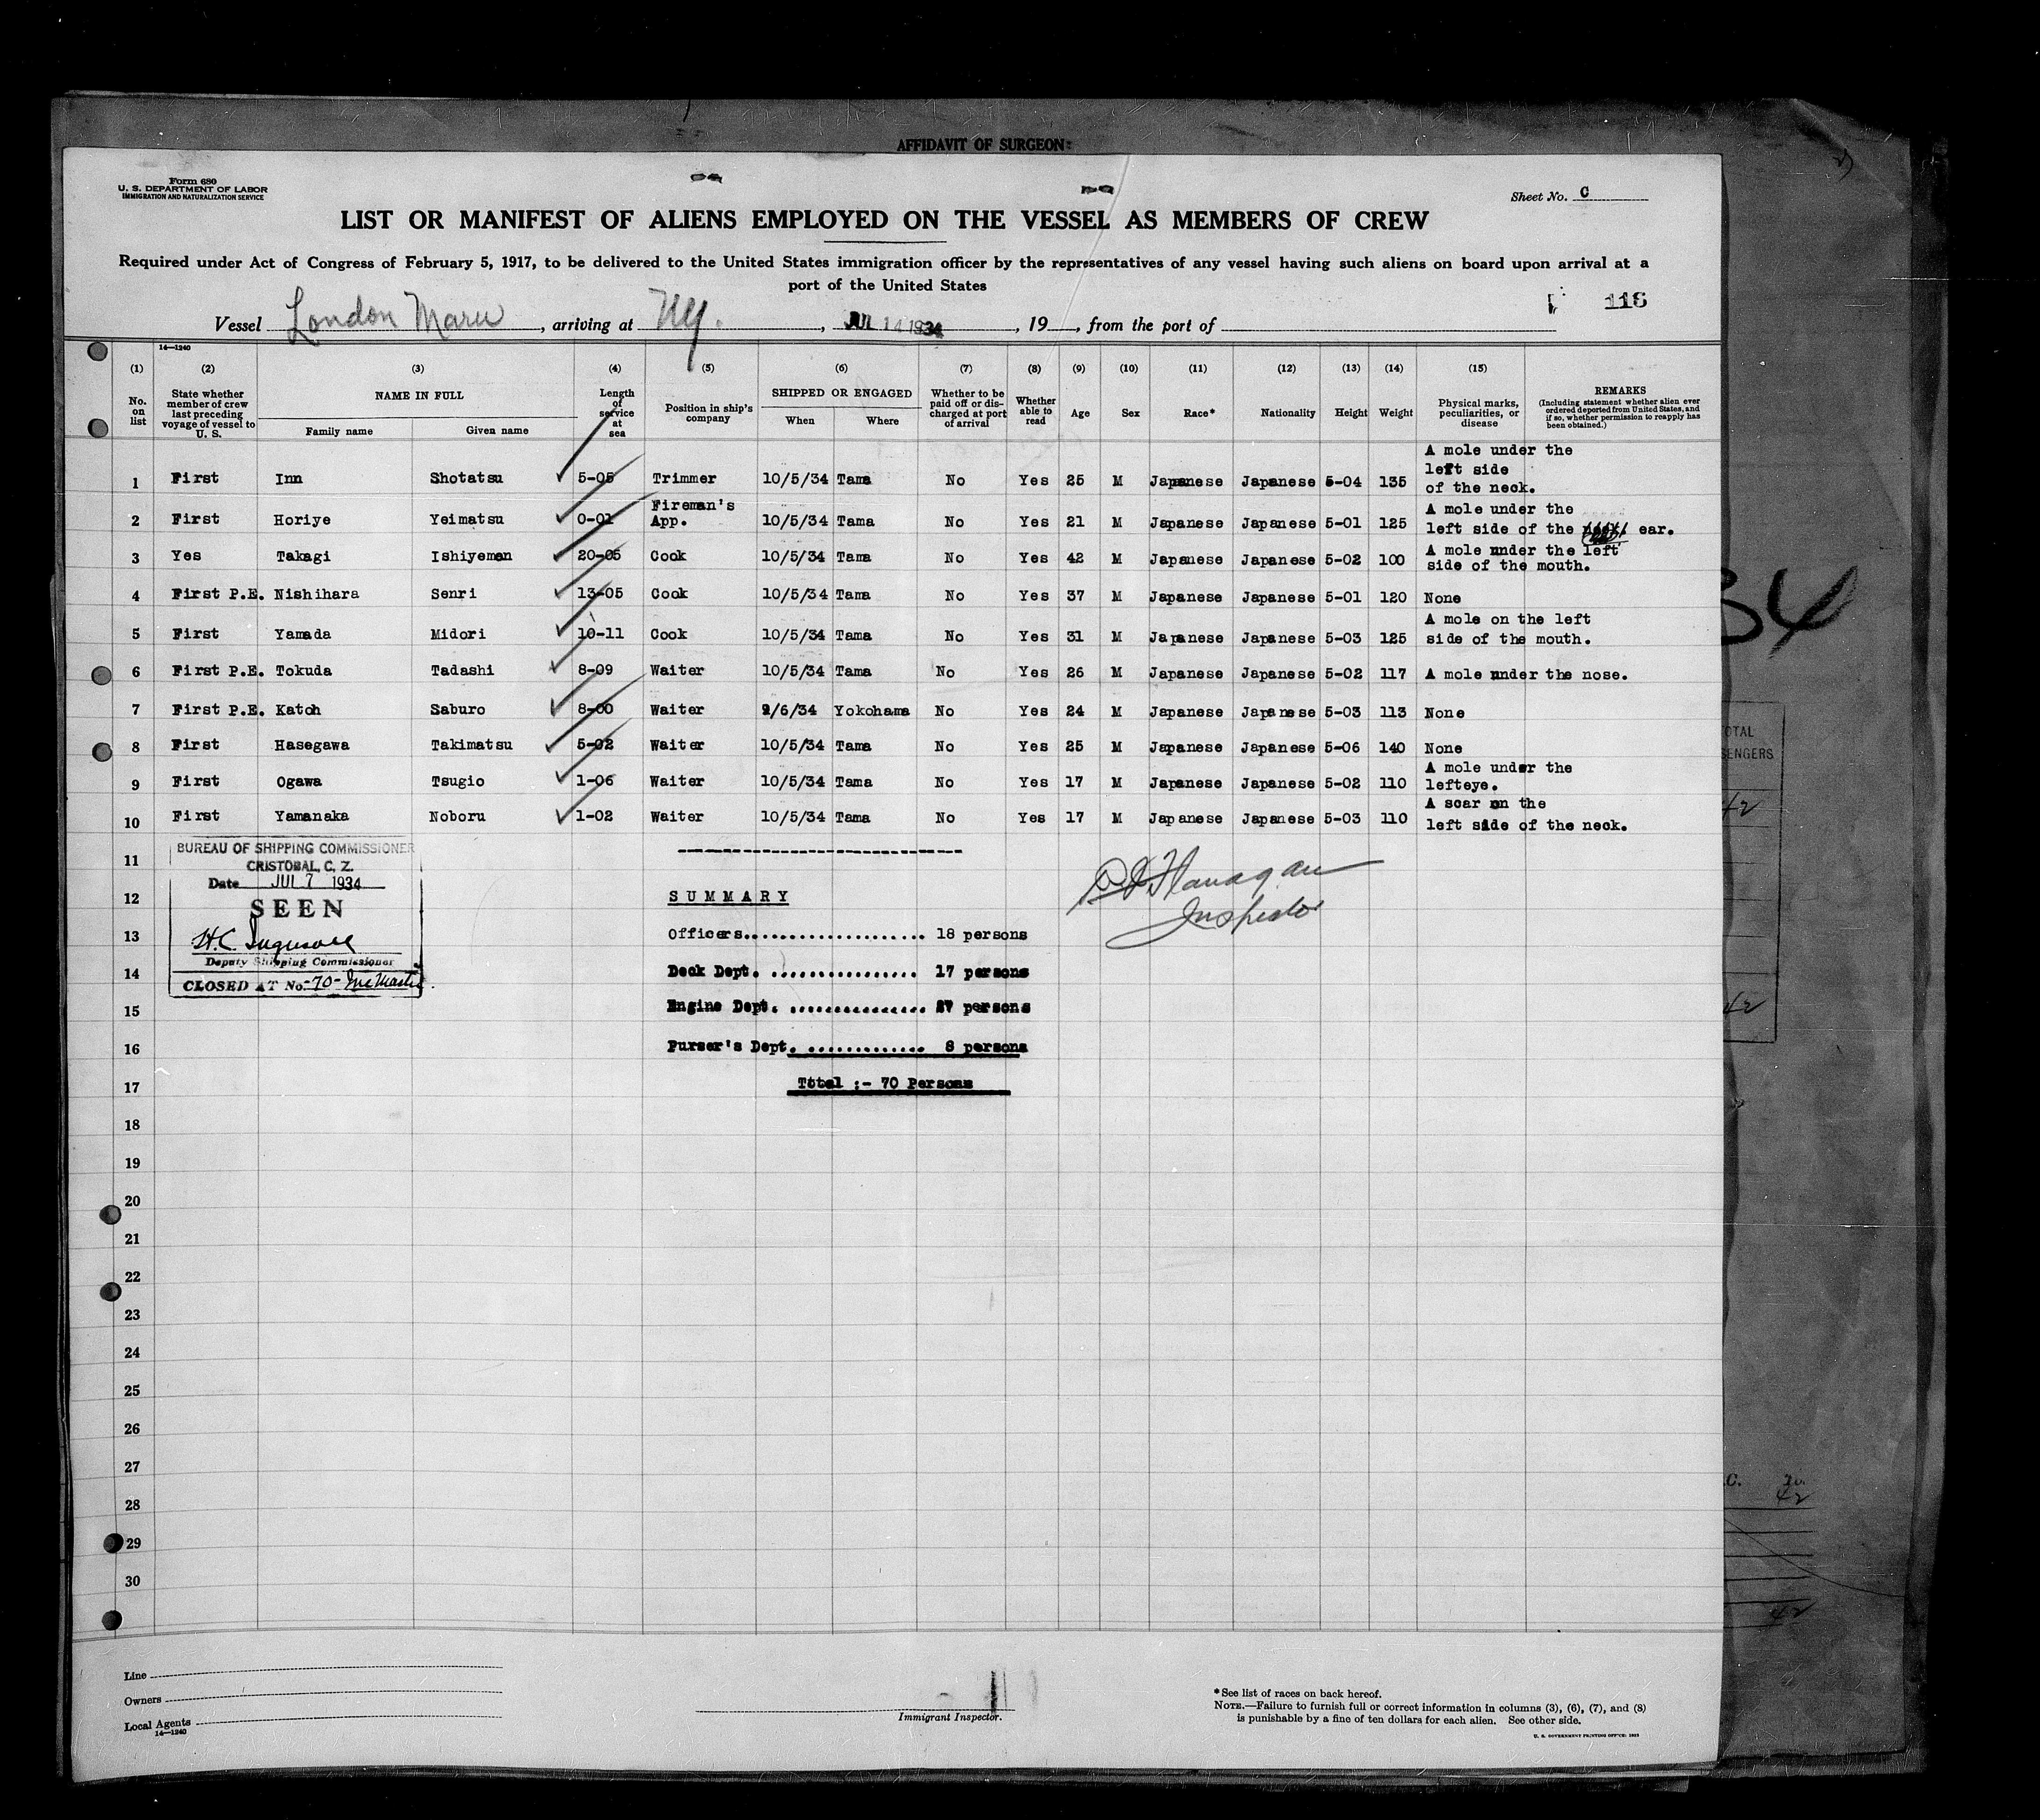 AFFIDAVIT OF SURGEON:
Form 680
U. S. DEPARTMENT OF LABOR
IMMIGRATION AND NATURALIZATION SERVICE
Sheet No. C
LIST OR MANIFEST OF ALIENS EMPLOYED ON THE VESSEL AS MEMBERS OF CREW
Required under Act of Congress of February 5, 1917, to be delivered to the United States immigration officer by the representatives of any vessel having such aliens on board upon arrival at a
port of the United States
116
Vessel London Maru, arriving at NY., JUL 14 1934, 19, from the port of
14—1240
(1) (2) (3) (4) (5) (6) (7) (8) (9) (10) (11) (12) (13) (14) (15)
No. on list
State whether member of crew last preceding voyage of vessel to U. S.
NAME IN FULL
Family name Given name
Length of service at sea
Position in ship's company
SHIPPED OR ENGAGED
When Where
Whether to be paid off or discharged at port of arrival
Whether able to read
Age Sex Race* Nationality Height Weight
Physical marks, peculiarities, or disease
REMARKS
(Including statement whether alien ever ordered deported from United States, and if so, whether permission to reapply has been obtained.)
1 First Inn Shotatsu 5-05 Trimmer 10/5/34 Tama No Yes 25 M Japanese Japanese 5-04 135 A mole under the left side of the neck.
2 First Horiye Yeimatsu 0-01 Fireman's App. 10/5/34 Tama No Yes 21 M Japanese Japanese 5-01 125 A mole under the left side of the ear.
3 Yes Takagi Ishiyemon 20-05 Cook 10/5/34 Tama No Yes 42 M Japanese Japanese 5-02 100 A mole under the left side of the mouth.
4 First P.E. Nishihara Senri 13-05 Cook 10/5/34 Tama No Yes 37 M Japanese Japanese 5-01 120 None
5 First Yamada Midori 10-11 Cook 10/5/34 Tama No Yes 31 M Japanese Japanese 5-03 125 A mole on the left side of the mouth.
6 First P.E. Tokuda Tadashi 8-09 Waiter 10/5/34 Tama No Yes 26 M Japanese Japanese 5-02 117 A mole under the nose.
7 First P.E. Katoh Saburo 8-00 Waiter 2/6/34 Yokohama No Yes 24 M Japanese Japanese 5-03 113 None
8 First Hasegawa Takimatsu 5-02 Waiter 10/5/34 Tama No Yes 25 M Japanese Japanese 5-06 140 None
9 First Ogawa Tsugio 1-06 Waiter 10/5/34 Tama No Yes 17 M Japanese Japanese 5-02 110 A mole under the lefteye.
10 First Yamanaka Noboru 1-02 Waiter 10/5/34 Tama No Yes 17 M Japanese Japanese 5-03 110 A scar on the left side of the neck.
11
12
13
14
15
16
17
18
19
20
21
22
23
24
25
26
27
28
29
30
BUREAU OF SHIPPING COMMISSIONER
CRISTOBAL, C. Z.
Date JUL 7 1934
SEEN
Deputy Shipping Commissioner
CLOSED AT No. -70-
SUMMARY
Officers.................... 18 persons
Deck Dept. ................ 17 persons
Engine Dept. ............... 27 persons
Purser's Dept. ............. 8 persons
Total :- 70 Persons
Flanagan
Inspector
34
TOTAL
42
42
42
42
Line
Owners
Local Agents
14—1240
Immigrant Inspector.
*See list of races on back hereof.
NOTE.—Failure to furnish full or correct information in columns (3), (6), (7), and (8)
is punishable by a fine of ten dollars for each alien. See other side.